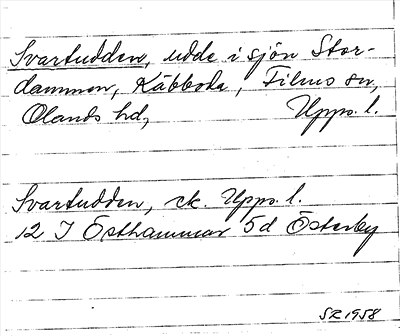 Svartudden, udde i sjön Stor-
dammen, Käbboda, Films sn,
Olands hd, Upps. l.
Svartudden, ek. Upps. l.
12 I Östhammar 5d Österby
SR 1958